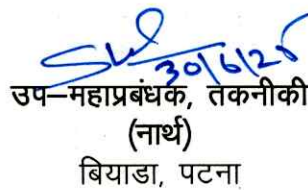 30/6/25
उप–महाप्रबंधक, तकनीकी
(नार्थ)
बियाडा, पटना